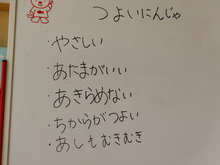 つよいにんじゃ
・やさしい
・あたまがいい
・あきらめない
・ちからがつよい
・あしもむきむき